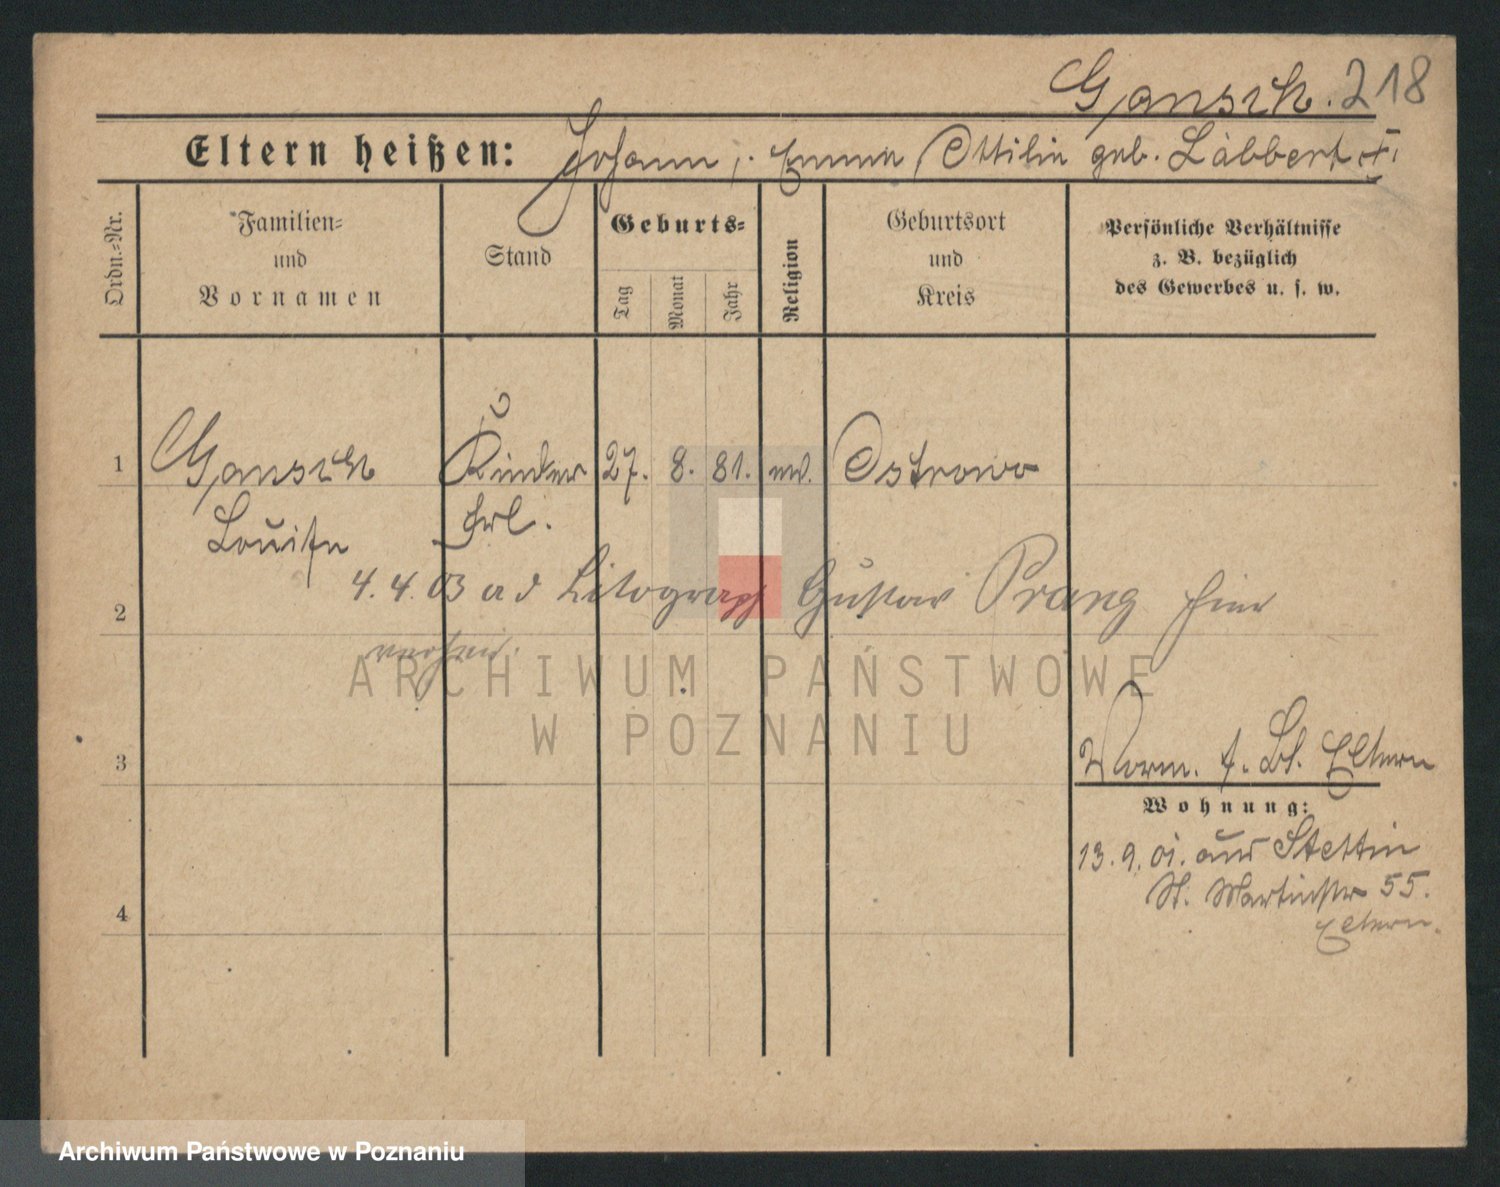 Gansch. 218
Eltern heißen: Johann, Emma, Ottilie geb. Läbbert
Ordn.-Nr.
Familien-
und
Vornamen
Stand
Geburts-
Tag
Monat
Jahr
Religion
Geburtsort
und
Kreis
Persönliche Verhältnisse
z. B. bezüglich
des Gewerbes u. s. w.
1 Gansch Kinder 27. 8. 81. Ostrowo
Louise frl.
2 4. 4. 03 ad Litograph Gustav Prang hier
3 Eltern
Wohnung:
13. 9. 01. aus Stettin
St. Martinstr 55.
Eltern.
4
ARCHIWUM PAŃSTWOWE
W POZNANIU
Archiwum Państwowe w Poznaniu